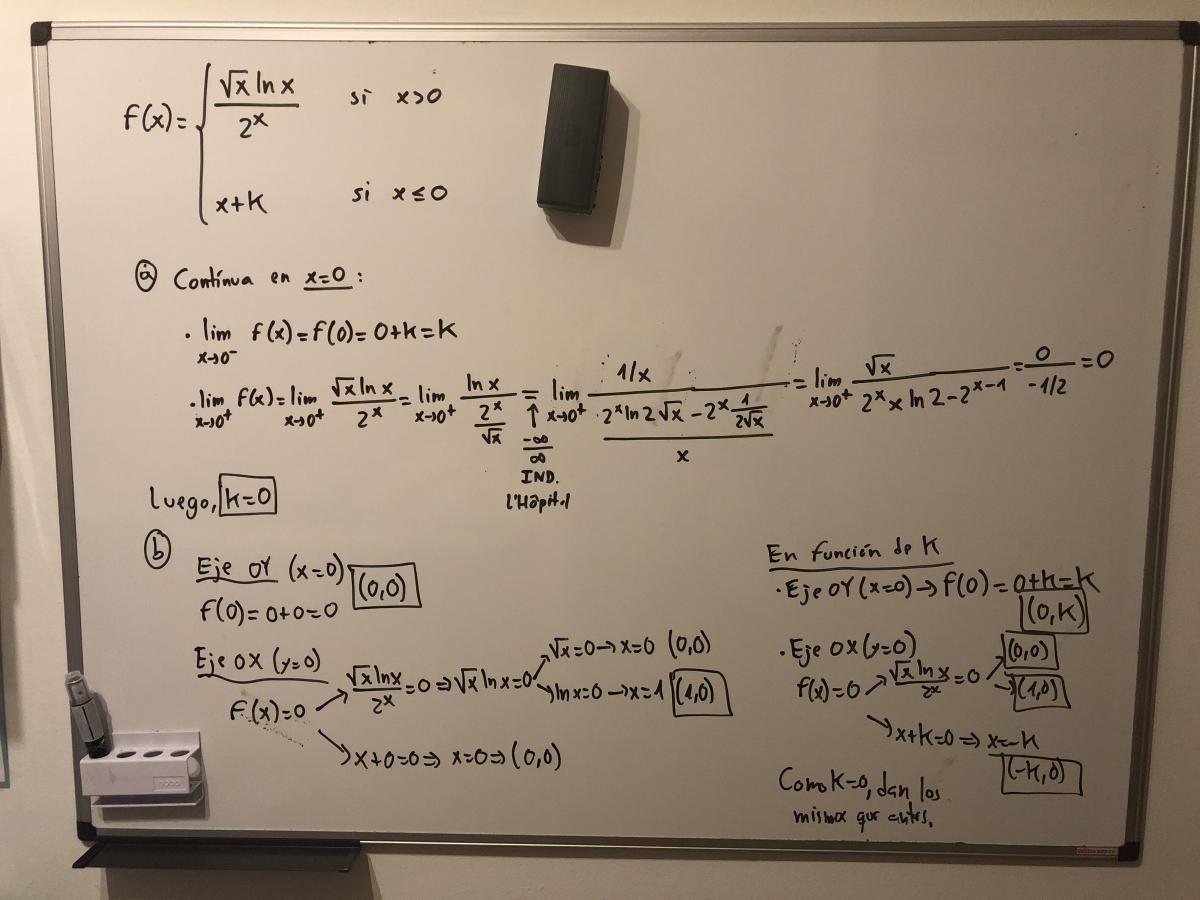 f(x) = { √x ln x / 2^x si x>0
x+k si x≤0
ⓐ Contínua en x=0 :
· lim x→0⁻ f(x) = f(0) = 0+k = k
· lim x→0⁺ f(x) = lim x→0⁺ √x ln x / 2^x = lim x→0⁺ ln x / (2^x / √x) = lim x→0⁺ (1/x) / ((2^x ln 2 √x − 2^x 1/(2√x)) / x) = lim x→0⁺ √x / (2^x x ln 2 − 2^(x−1)) = 0 / (−1/2) = 0
↑
−∞/∞
IND.
l'Hôpital
Luego, k=0
ⓑ
Eje OY (x=0) (0,0)
f(0) = 0+0 = 0
Eje OX (y=0)
f(x)=0 ↗ √x ln x / 2^x = 0 ⇒ √x ln x = 0 ↗ √x=0 → x=0 (0,0)
↘ ln x=0 → x=1 (1,0)
↘ x+0=0 ⇒ x=0 ⇒ (0,0)
En función de k
· Eje OY (x=0) → f(0) = 0+k = k
(0,k)
· Eje OX (y=0)
f(x)=0 ↗ √x ln x / 2^x = 0 ↗ (0,0)
→ (1,0)
↘ x+k=0 ⇒ x=−k
(−k,0)
Como k=0, dan los
mismos que antes.